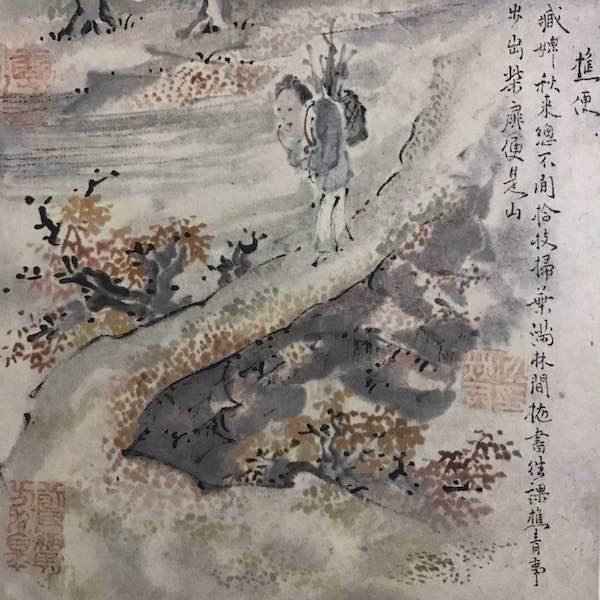 樵便
臧婢秋来總不閒拾枝掃葉滿林間抛書往課樵青事
步出柴扉便是山